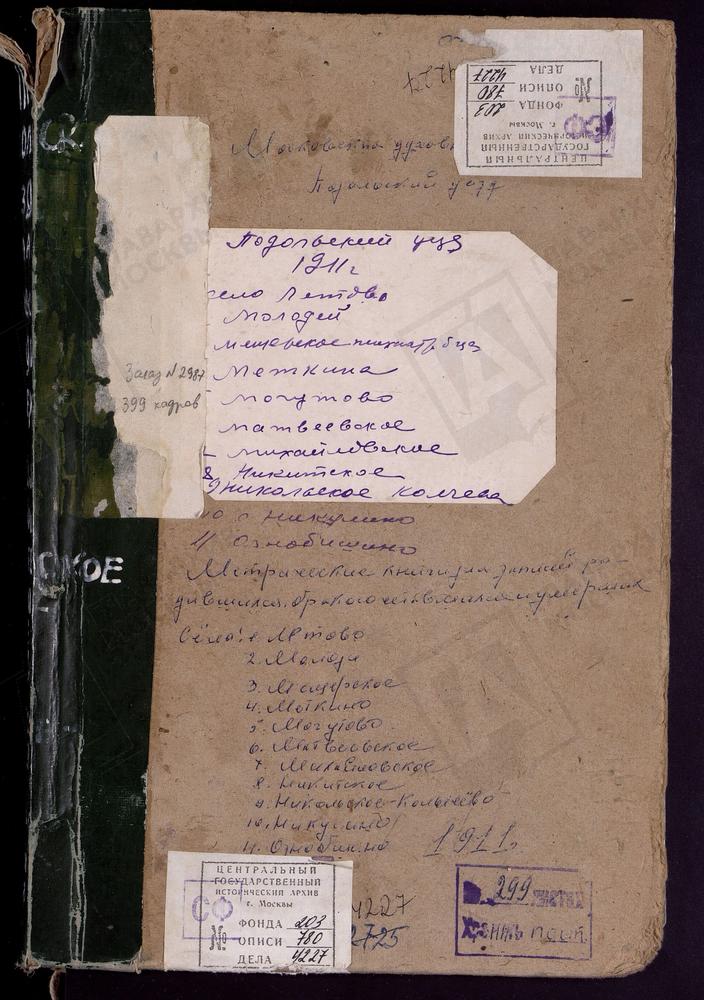 4227
ЦЕНТРАЛЬНЫЙ
ГОСУДАРСТВЕННЫЙ
ИСТОРИЧЕСКИЙ АРХИВ
г. Москвы
ФОНДА 203
№ ОПИСИ 780
ДЕЛА 4227
СФ
Московская духовн
Подольский уезд
Подольский уезд
1911г
село Летово
Молодей
Мещерское психиатр. бца
Меткина
Могутово
Матвеевское
Михайловское
8 Никитское
9 Никольское Колчева
10 с Никулино
11 Ознобишино
Заказ N 2987
399 кадров
СКОЕ
Метрические книги для записей ро-
дившихся, бракосочетавшихся и умерших
Сёла: 1. Летово
2. Молоди
3. Мещерское
4. Меткино
5. Могутово
6. Матвеевское
7. Михайловское
8. Никитское
9. Никольское-Колычево
10. Никулино
11. Ознобишино
1911г.
ЦЕНТРАЛЬНЫЙ
ГОСУДАРСТВЕННЫЙ
ИСТОРИЧЕСКИЙ АРХИВ
г. Москвы
СФ
ФОНДА 203
№ ОПИСИ 780
ДЕЛА 4227
4227
2725
299
Хранить пост.
ГЛАВАРХИВ
МОСКВЫ